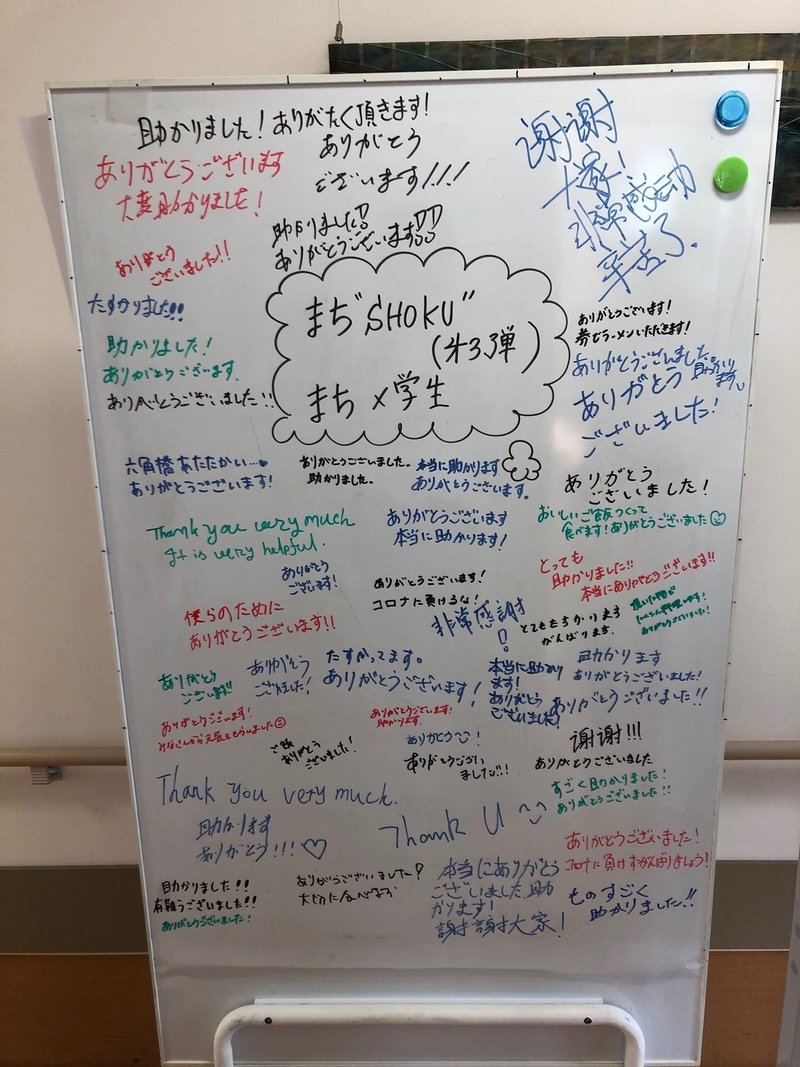 助かりました！ありがたく頂きます！
ありがとうございます
大変助かりました！
ありがとう
ございます!!!
谢谢
大家！
非常感动
辛苦了.
助かりました!!
ありがとうございます!!!
ありがとう
ございました!!
たすかりました!!
助かりました！
ありがとうございます.
ありがとうございました!!
まち"SHOKU"
(才3弾)
まち×学生
ありがとうございます！
ラーメンいただきます！
ありがとうございました.
助かります。
ありがとう
ございました！
六角橋あたたかい…
ありがとうございます！
ありがとうございました。
助かりました。
本当に助かります
ありがとうございます。
ありがとう
ございました！
Thank you very much
It is very helpful.
ありがとうございます
本当に助かります！
おいしいご飯つくって
食べます！ありがとうございました
ありがとう
ございます！
ありがとうございます！
コロナに負けるな！
とっても
助かりました!!
本当にありがとうございます!!
僕らのために
ありがとうございます!!
非常感谢
!
とてもたすかります
がんばります.
ありがとう
ございます!!
ありがとう
ございました！
たすかってます。
ありがとうございます！
本当に助かり
ます！
ありがとう
ございました！
助かります
ありがとうございました！
ありがとうございました!!
ありがとうございます！
みなさんから元気をもらいました
ありがとうございます！
助かります.
ありがとう
ございました！
ありがとう！
ありがとうござい
ました!!
谢谢!!!
ありがとうございました
すごく助かりました！
ありがとうございました!!
Thank you very much.
助かります
ありがとう!!!♡
Thank U
ありがとうございました！
コロナに負けずがんばりましょう！
助かりました!!
有難うございました!!
ありがとうございました！
ありがとうございました
大切に食べ
本当にありがとう
ございました.助
かります！
謝謝大家！
ものすごく
助かりました!!